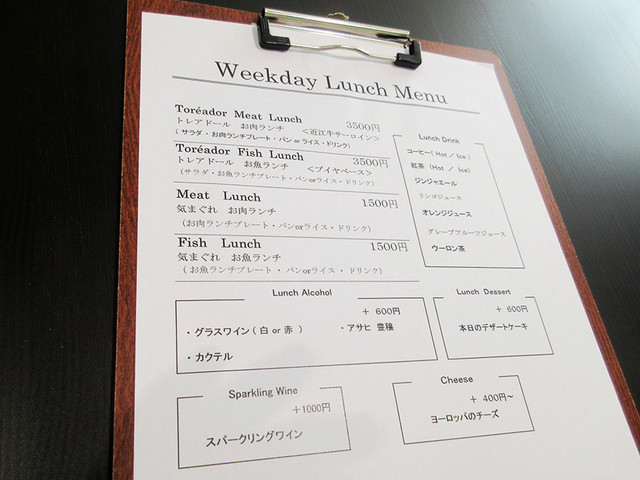 Weekday Lunch Menu
Toréador Meat Lunch 3500円
トレアドール お肉ランチ <近江牛サーロイン>
(サラダ・お肉ランチプレート・パンorライス・ドリンク)
Toréador Fish Lunch 3500円
トレアドール お魚ランチ <ブイヤベース>
(サラダ・お魚ランチプレート・パンorライス・ドリンク)
Meat Lunch 1500円
気まぐれ お肉ランチ
(お肉ランチプレート・パンorライス・ドリンク)
Fish Lunch 1500円
気まぐれ お魚ランチ
(お魚ランチプレート・パンorライス・ドリンク)
Lunch Drink
コーヒー(Hot / Ice)
紅茶 (Hot / Ice)
ジンジャエール
リンゴジュース
オレンジジュース
グレープフルーツジュース
ウーロン茶
Lunch Alcohol
+ 600円
・グラスワイン(白 or 赤) ・アサヒ 豊穣
・カクテル
Lunch Dessert
+ 600円
本日のデザートケーキ
Sparkling Wine
+1000円
スパークリングワイン
Cheese
+ 400円~
ヨーロッパのチーズ